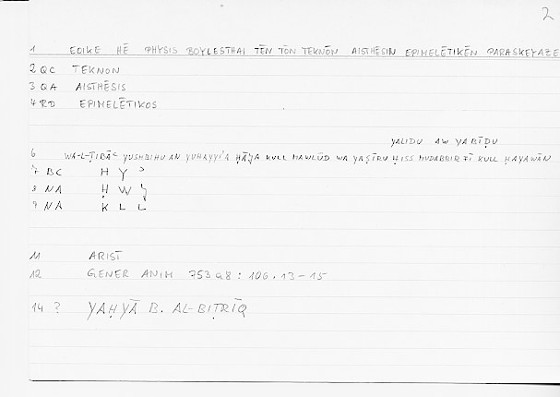 2
1 EOIKE HĒ PHYSIS BOYLESTHAI TĒN TŌN TEKNŌN AISTHĒSIN EPIMELĒTIKĒN PARASKEYAZE
2 QC TEKNON
3 QA AISTHĒSIS
4 RD EPIMELĒTIKOS
YALIDU AW YABĪḌU
6 WA-L-ṬIBĀʿ YUSHBIHU AN YUHAYYIʾA ḤĀLA KULL MAWLŪD WA YAṢĪRU ḤISS MUDABBIR FĪ KULL ḤAYAWĀN
7 BC H Y ʾ
8 NA Ḥ W L
9 NA K L L
11 ARIST
12 GENER ANIM 753 a8 : 106.13-15
14 ? YAḤYĀ B. AL-BIṬRĪQ